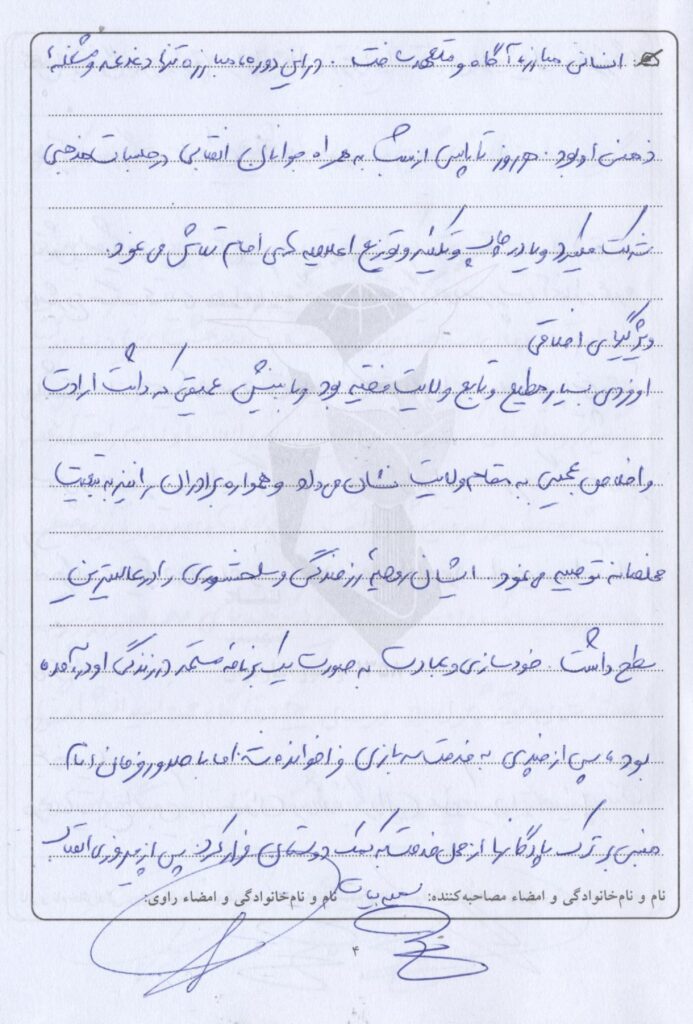 انسانی مبارز، آگاه و متعهد ساخت. در این دوره، مبارزه تنها دغدغه و مشغله‌ی
ذهنی او بود. هر روز تا پاسی از شب به همراه جوانان انقلابی در جلسات مذهبی
شرکت میکرد و یا در چاپ و تکثیر و توزیع اعلامیه های امام تلاش می نمود.
ویژگیهای اخلاقی
او فردی بسیار مطیع و تابع ولایت فقیه بود و با بینش عمیقی که داشت ارادت
و اخلاص عجیبی به مقام ولایت نشان می داد و همواره برادران را نیز به تبعیت
مخلصانه توصیه می نمود. ایشان روحیهٔ رزمندگی و سلحشوری را در عالیترین
سطح داشت. خودسازی و عبادت به صورت یک برنامهٔ مستمر در زندگی او درآمده
بود، پس از چندی به خدمت سربازی فراخوانده شد اما با صدور فرمان امام
مبنی بر ترک پادگانها از محل خدمت به کمک دوستان فرار کرد. پس از پیروزی انقلاب
نام و نام‌خانوادگی و امضاء مصاحبه‌کننده: نام و نام‌خانوادگی و امضاء راوی:
۴